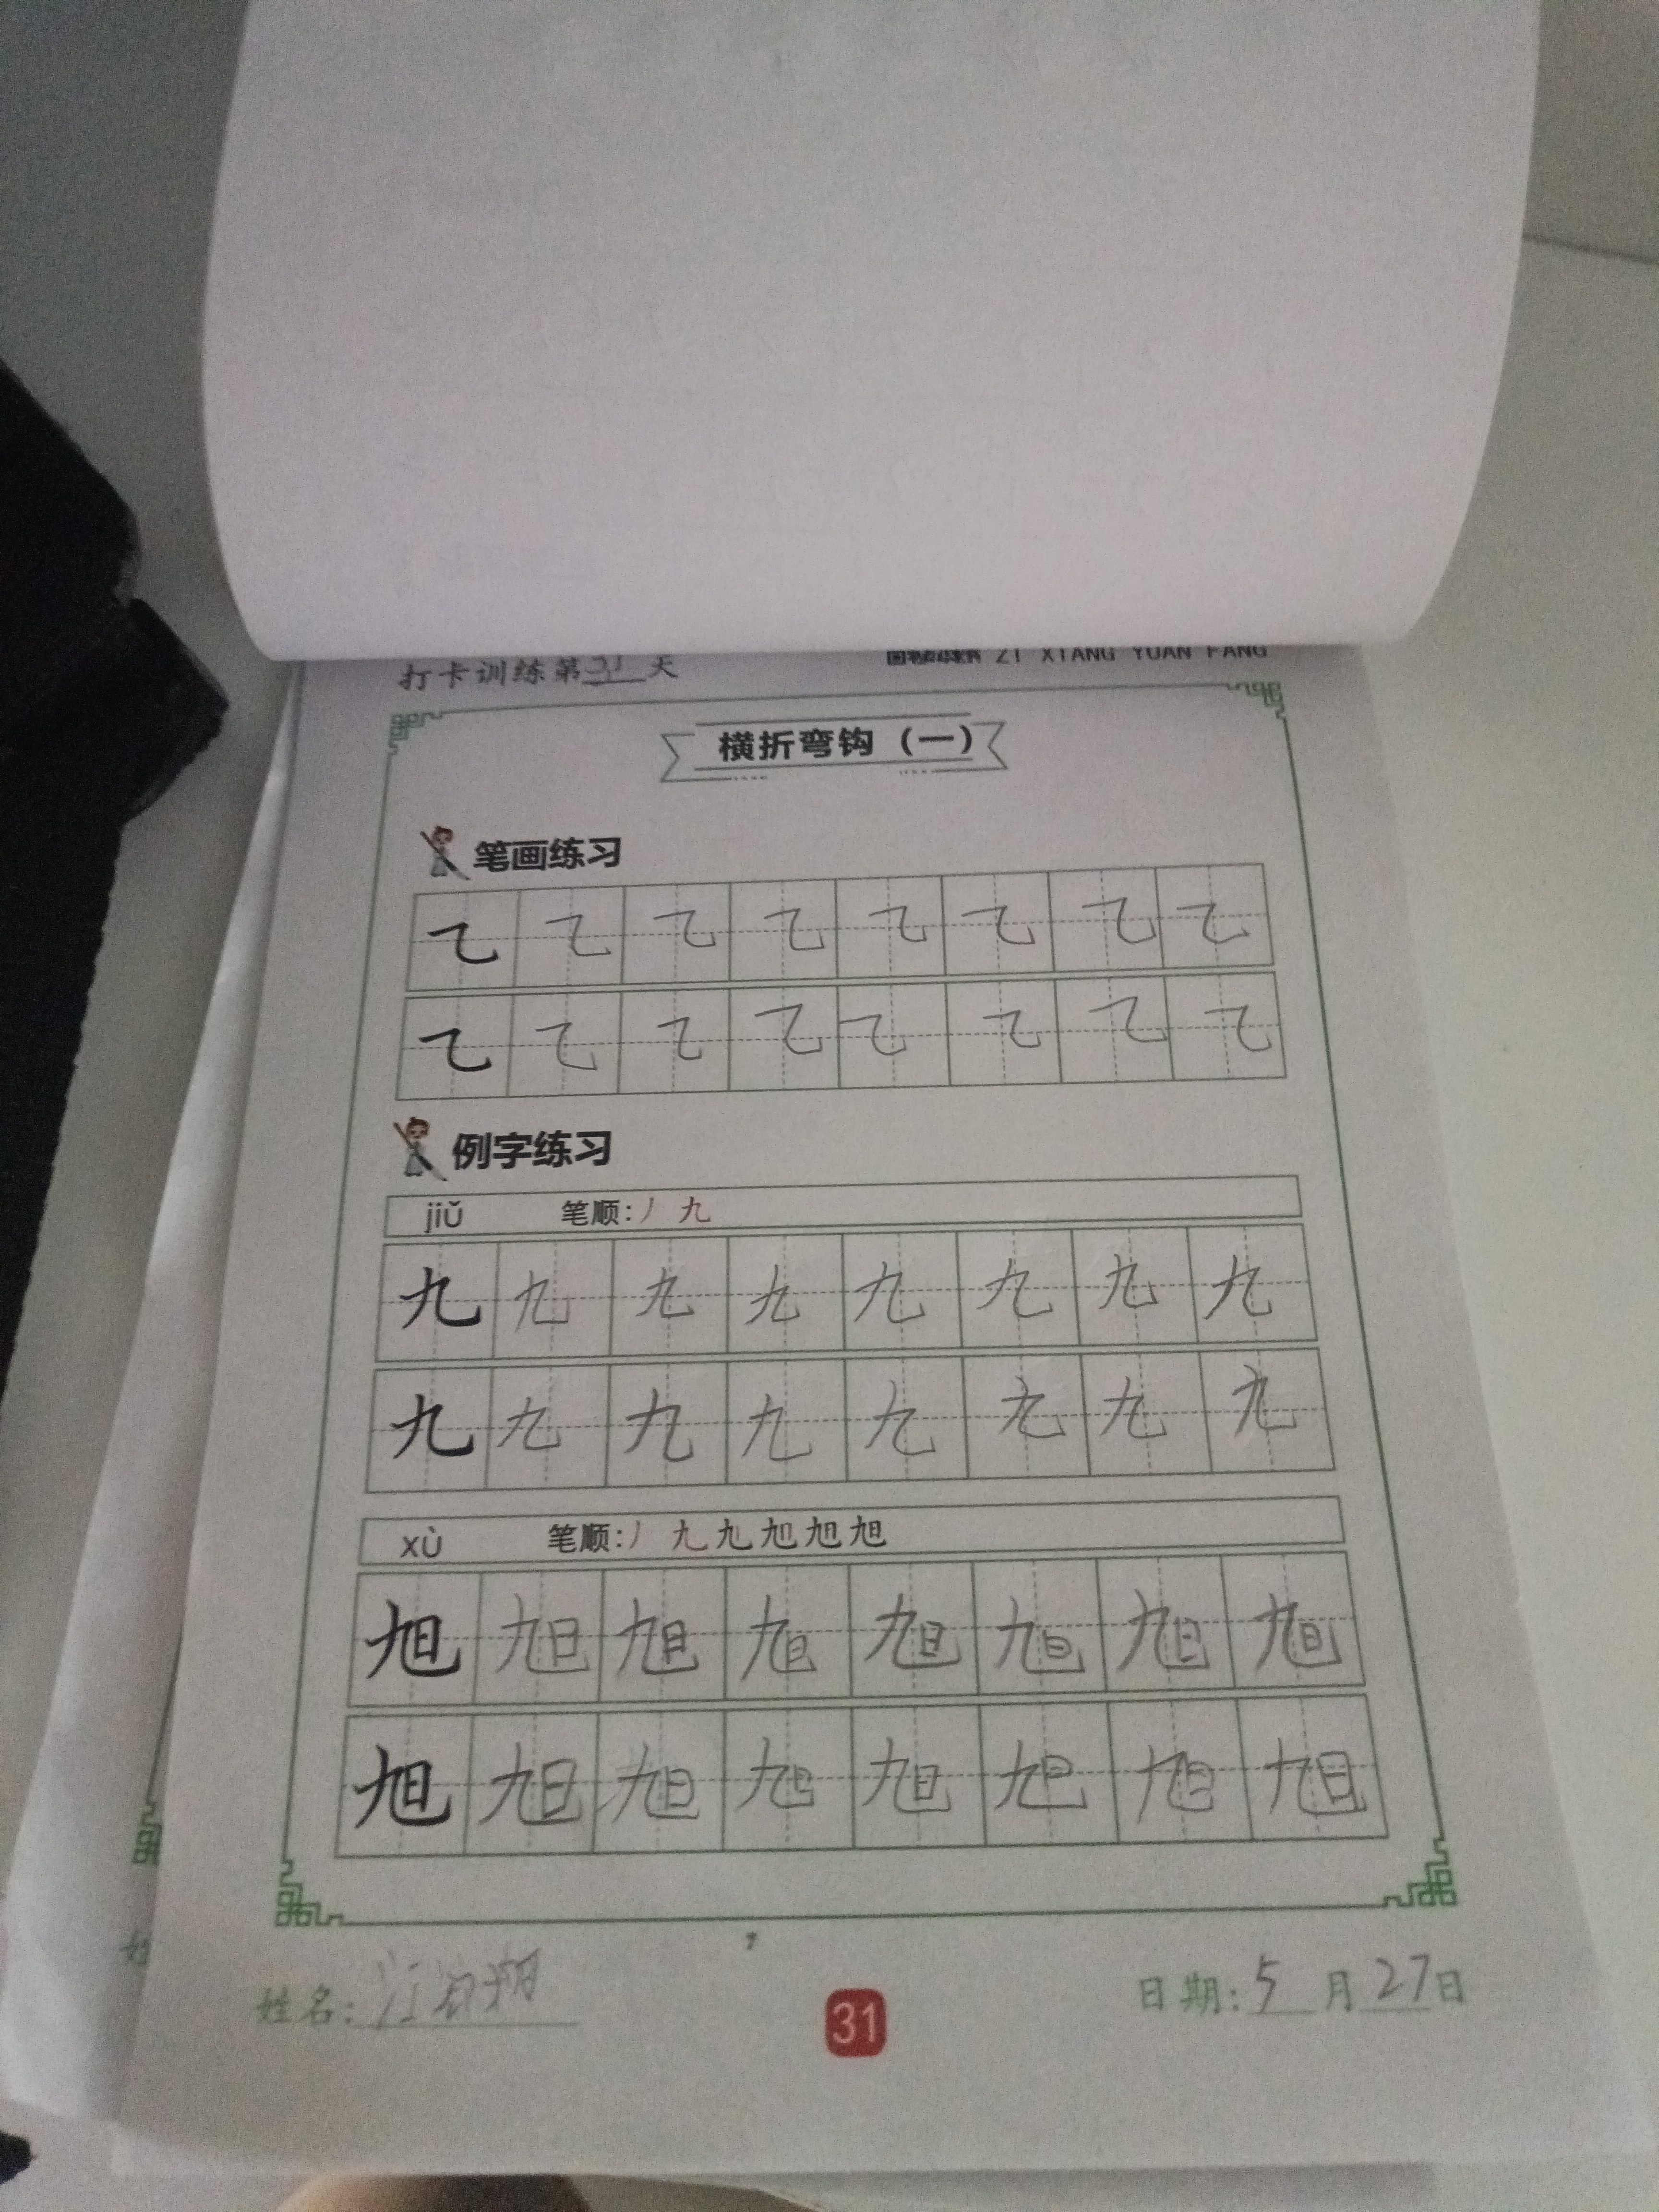 打卡训练第31天
ZI XIANG YUAN FANG
横折弯钩（一）
笔画练习
乙 乙 乙 乙 乙 乙 乙 乙
乙 乙 乙 乙 乙 乙 乙 乙
例字练习
jiǔ 笔顺:丿 九
九 九 九 九 九 九 九 九
九 九 九 九 九 九 九 九
xù 笔顺:丿 九 旭 旭 旭
旭 旭 旭 旭 旭 旭 旭 旭
旭 旭 旭 旭 旭 旭 旭 旭
姓名: 江
31
日期:5月27日